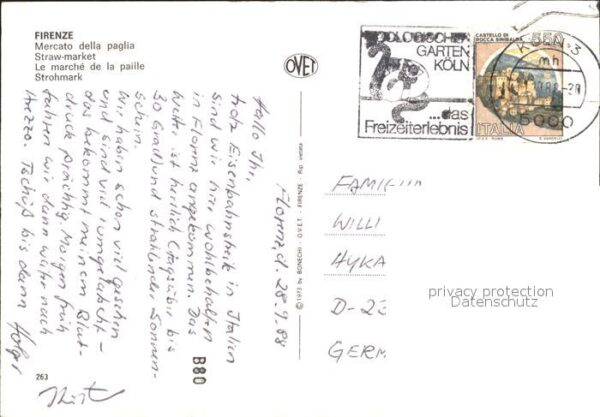 FIRENZE
Mercato della paglia
Straw-market
Le marché de la paille
Strohmark
OVET
ZOOLOGISCHER
GARTEN
KÖLN
...das
Freizeiterlebnis
CASTELLO DI
ROCCA SINIBALDA
550
ITALIA
KÖLN 3
mh
5000
Florenz, d. 28.9.88
Hallo Ihr,
trotz Eisenbahnstreik in Italien
sind wir hier wohlbehalten
in Florenz angekommen. Das
Wetter ist herrlich (tagsüber bis
30 Grad) und strahlender Sonnen-
schein.
Wir haben schon viel gesehen
und sind viel rumgelatscht -
das bekommt meinem Blut-
druck prächtig. Morgen früh
fahren wir dann weiter nach
Arezzo. Tschüß bis dann
Holger
© 1973 by BONECHI - O.V.E.T. - FIRENZE - Rip. vietata
B80
FAMILIE
WILLI
HYKA
D-23
GERM
privacy protection
Datenschutz
263